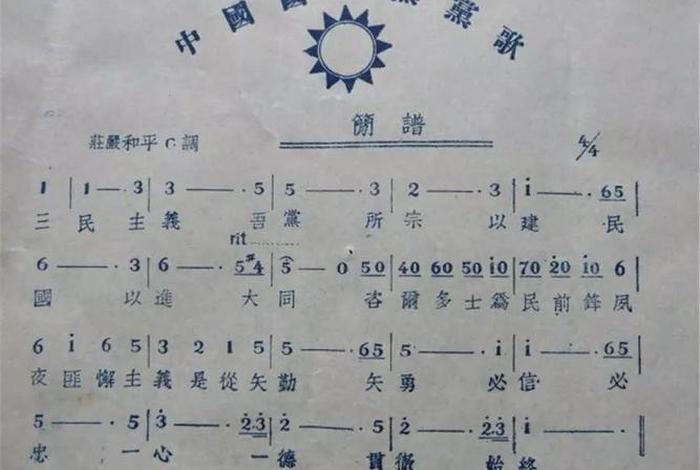 中國國 黨黨歌
簡譜
莊嚴和平 C 調 4/4
1 | 1 — · 3 | 3 — — · 5 | 5 — — · 3 | 2 — — · 3 | i — · 65
三 民 主 義 吾 黨 所 宗 以 建 民
rit
6 — — · 3 | 6 — · 5#4 | 5 — 0 50 | 40 60 50 i0 | 70 20 i0 6
國 以 進 大 同 咨 爾 多 士 爲 民 前 鋒 夙
6 i 6 5 | 3 2 1 5 | 5 — · 65 | 5 — · i | i — · 65
夜 匪 懈 主 義 是 從 矢 勤 矢 勇 必 信 必
5 — · 5 | 3 — · 2·3 | 2 — · 5 | 2 — · 2·3 | i — ·
忠 一 心 一 德 貫 徹 始 終